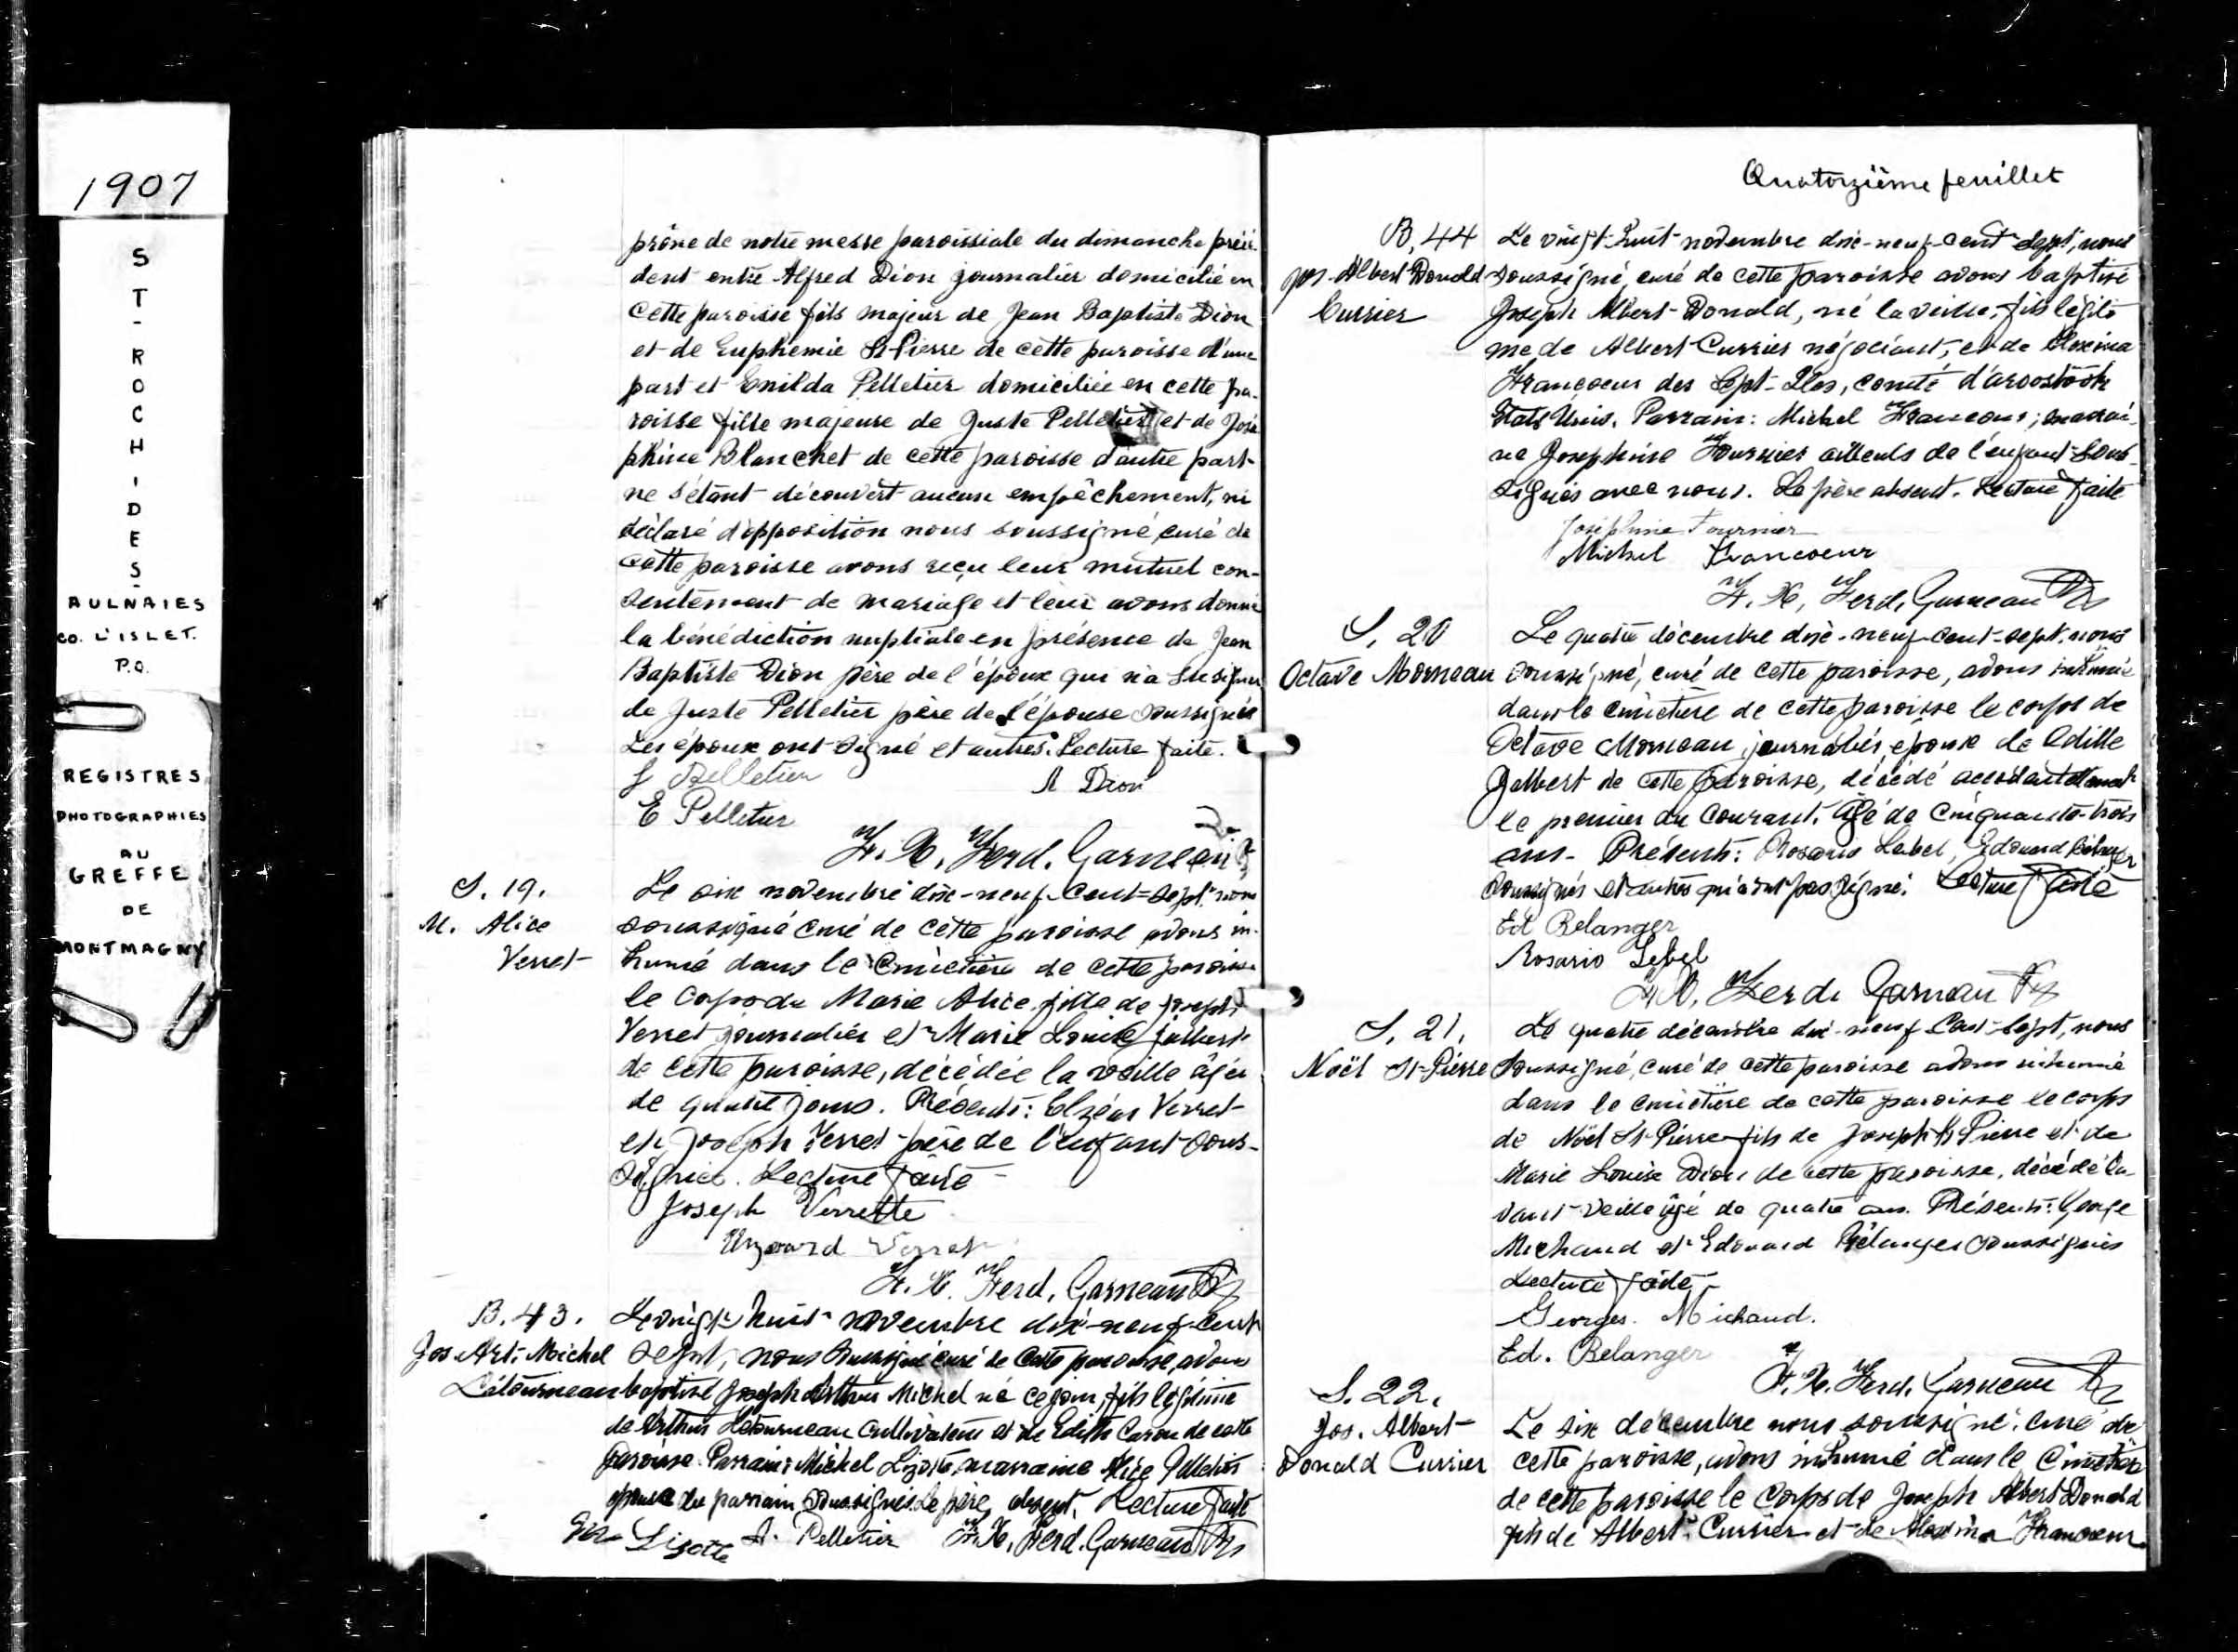 1907
S
T
-
R
O
C
H
-
D
E
S
-
AULNAIES
CO. L'ISLET.
P.Q.
REGISTRES
PHOTOGRAPHIES
AU
GREFFE
DE
MONTMAGNY
prône de notre messe paroissiale du dimanche précé-
dent entre Alfred Dion journalier domicilié en
cette paroisse fils majeur de Jean Baptiste Dion
et de Euphémie St-Pierre de cette paroisse d'une
part et Enilda Pelletier domiciliée en cette pa-
roisse fille majeure de Juste Pelletier et de José
phine Blanchet de cette paroisse d'autre part
ne s'étant découvert aucun empêchement, ni
déclaré d'opposition nous soussigné curé de
cette paroisse avons reçu leur mutuel con-
sentement de mariage et leur avons donné
la bénédiction nuptiale en présence de Jean
Baptiste Dion père de l'époux qui n'a su signer
de Juste Pelletier père de l'épouse soussignés
Les époux ont signé et autres. Lecture faite.
J Pelletier A Dion
E Pelletier
F. X. Ferd. Garneau
S. 19.
M. Alice
Verret
Le six novembre dix-neuf-cent-sept, nous
soussigné curé de cette paroisse avons in-
humé dans le cimetière de cette paroisse
le corps de Marie Alice fille de Joseph
Verret journalier et Marie Louise Jalbert
de cette paroisse, décédée la veille âgée
de quatre jours. Présents: Elzéar Verret
et Joseph Verret père de l'enfant sous-
signés. Lecture faite
Joseph Verrette
Verret
F. X. Ferd. Garneau Ptre
B. 43.
Jos. Art. Michel
Létourneau
Le vingt-huit novembre dix-neuf-cent
sept, nous soussigné curé de cette paroisse, avons
baptisé Joseph Arthur Michel né ce jour, fils légitime
de Arthur Létourneau cultivateur et de Edith Caron de cette
paroisse. Parrain: Michel Lizotte, marraine Alice Pelletier
épouse du parrain soussignés. Le père absent. Lecture faite
Lizotte A. Pelletier F. X. Ferd. Garneau Ptre
Quatorzième feuillet
B. 44
Jos. Albert Donald
Currier
Le vingt-huit novembre dix-neuf-cent sept, nous
soussigné, curé de cette paroisse avons baptisé
Joseph Albert-Donald, né la veille, fils légiti
me de Albert Currier négociant, et de Alexina
Francoeur des Sept-Iles, comté d'aroostook
Etats Unis. Parrain: Michel Francoeur; marrai-
ne Josephine Fournier aïeuls de l'enfant sous-
signés avec nous. Le père absent. Lecture faite
Joséphine Fournier
Michel Francoeur
F. X. Ferd. Garneau Ptre
S. 20
Octave Morneau
Le quatre décembre dix-neuf-cent-sept, nous
soussigné, curé de cette paroisse, avons inhumé
dans le cimetière de cette paroisse le corps de
Octave Morneau journalier, époux de Odille
Jalbert de cette paroisse, décédé accidentellement
le premier du courant, âgé de cinquante-trois
ans. Présents: Rosario Lebel, Edouard Bélanger
soussignés et autres qui n'ont pas signé. Lecture faite
Ed Belanger
Rosario Lebel
F. X. Ferd. Garneau Ptre
S. 21.
Noël St-Pierre
Le quatre décembre dix-neuf-cent-sept, nous
soussigné, curé de cette paroisse avons inhumé
dans le cimetière de cette paroisse le corps
de Noël St-Pierre fils de Joseph St-Pierre et de
Marie Louise Dion de cette paroisse, décédé la
vant-veille âgé de quatre ans. Présents: George
Michaud et Edouard Bélanger soussignés
Lecture faite
Georges. Michaud.
Ed. Belanger
F. X. Ferd. Garneau Ptre
S. 22.
Jos. Albert
Donald Currier
Le six décembre nous soussigné, curé de
cette paroisse, avons inhumé dans le cimetière
de cette paroisse le corps de Joseph Albert Donald
fils de Albert Currier et de Alexina Francoeur